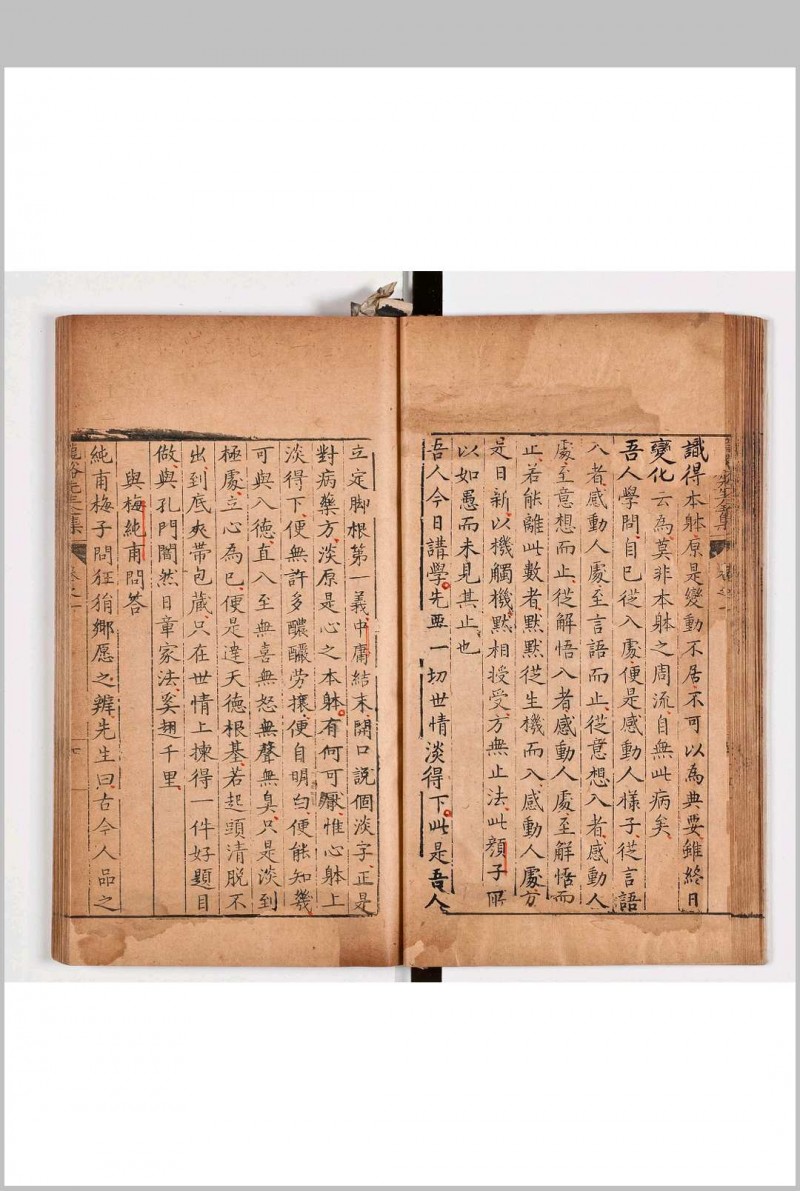 識得本躰原是變動不居不可以為典要雖終日
變化云為莫非本躰之周流自無此病矣
吾人學問自已從入處便是感動人樣子從言語
入者感動人處至言語而止從意想入者感動人
處至意想而止從解悟入者感動人處至解悟而
止若能離此數者默默從生機而入感動人處方
是日新以機觸機默相授受方無止法此顏子所
以如愚而未見其止也
吾人今日講學先要一切世情淡得下此是吾人
立定脚根第一義中庸結末開口說個淡字正是
對病藥方淡原是心之本躰有何可厭惟心躰上
淡得下便無許多醲釅勞攘便自明白便能知幾
可與入德直入至無喜無怒無聲無臭只是淡到
極處立心為已便是達天德根基若起頭清脫不
出到底夾帶包藏只在世情上揀得一件好題目
做與孔門闇然日章家法奚翅千里
與梅純甫問答
純甫梅子問狂狷鄉愿之辨先生曰古今人品之
龍谿先生全集 卷之一